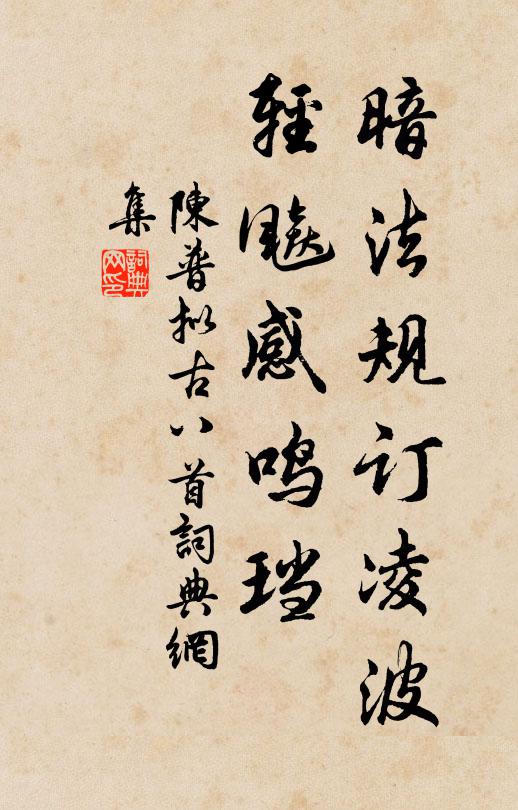 暗法规订凌波
輕飚感鸣珰
陳普拟古八首詞典網
集
詞典
网印